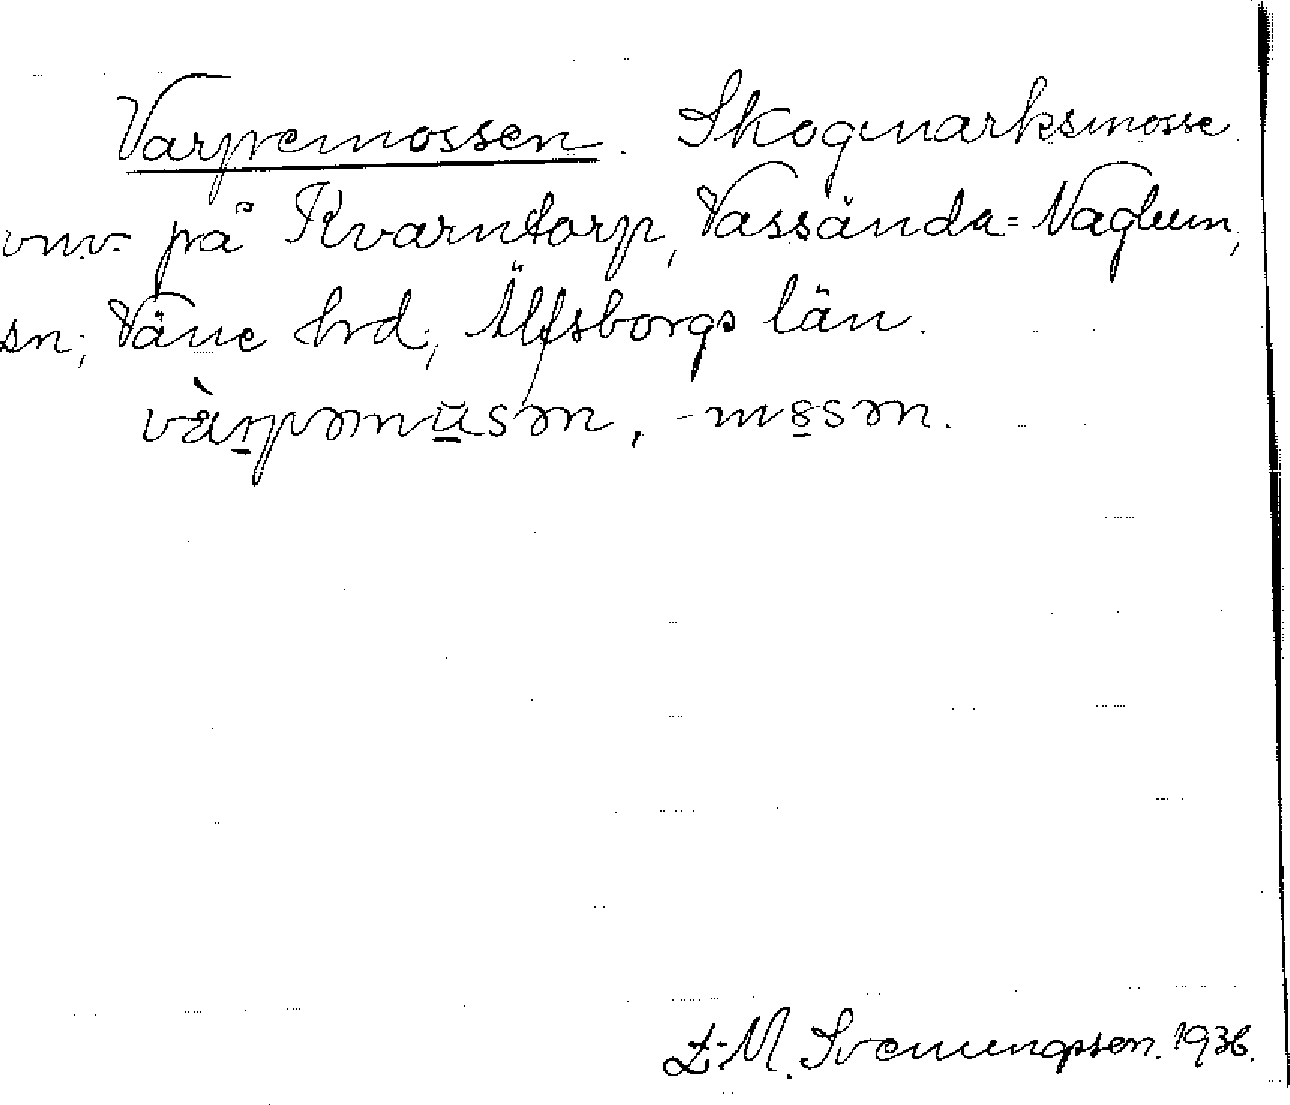 Varpemossen. Skogmarksmosse
vnv. på Kvarntorp, Vassända=Naglum,
sn; Väne hrd; Älfsborgs län.
vàrpəmusən, -mɵsən.
L-M. Svenungsson. 1936.